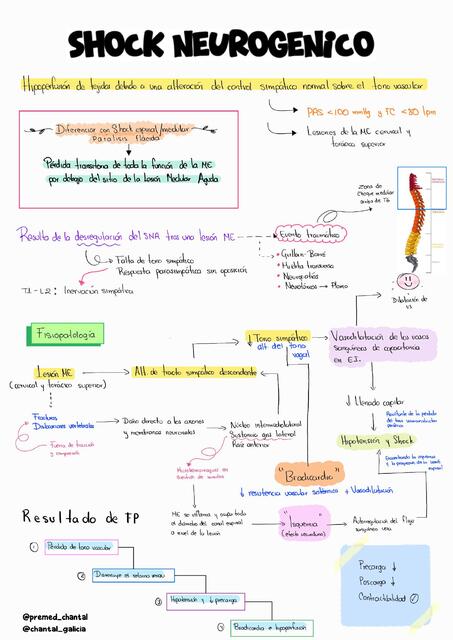 SHOCK NEUROGENICO
Hipoperfusión de tejido debido a una alteración del control simpático normal sobre el tono vascular
PAS <100 mmHg y FC <80 lpm
Lesiones de la ME cervical y
torácica superior
Diferenciar con Shock espinal/medular
Paralisis flácida
Pérdida transitoria de toda la función de la ME
por debajo del sitio de la Lesión Medular Aguda
Zona de
Choque medular
arriba de T6
Resulta de la desregulación del SNA tras una lesión ME
Evento traumático
Falta de tono simpático
Respuesta parasimpática sin oposición
Guillain-Barré
Mielitis transversa
Neuropatías
T1-L2: Inervación simpática
Dilatación de
Fisiopatología
↓ Tono simpático
alt. del tono
vagal
Vasodilatación de los vasos
sanguíneos de capacitancia
en E.I.
Lesión ME
(cervical y torácica superior)
Alt. de tracto simpático descendente
↓ Llenado capilar
Resultante de la pérdida
del tono
Fracturas
Dislocaciones vertebrales
Daño directo a los axones
y membranas neuronales
Núcleo intermediolateral
Sustancia gris lateral
Raíz anterior
Hipotensión y Shock
Fuerza de tracción
y compresión
Microhemorragias en
"Bradicardia"
↓ resistencia vascular sistémica + Vasodilatación
Resultado de FP
ME se inflama y ocupa todo
el diámetro del canal espinal
a nivel de la lesión
"Isquemia"
(efecto secundario)
Autorregulación del flujo
sanguíneo
① Pérdida de tono vascular
② Disminuye el retorno venoso
③ Hipotensión y ↓ precarga
Bradicardia e hipoperfusión
Precarga ↓
Poscarga ↓
Contractilidad
@premed_chantal
@chantal_galicia